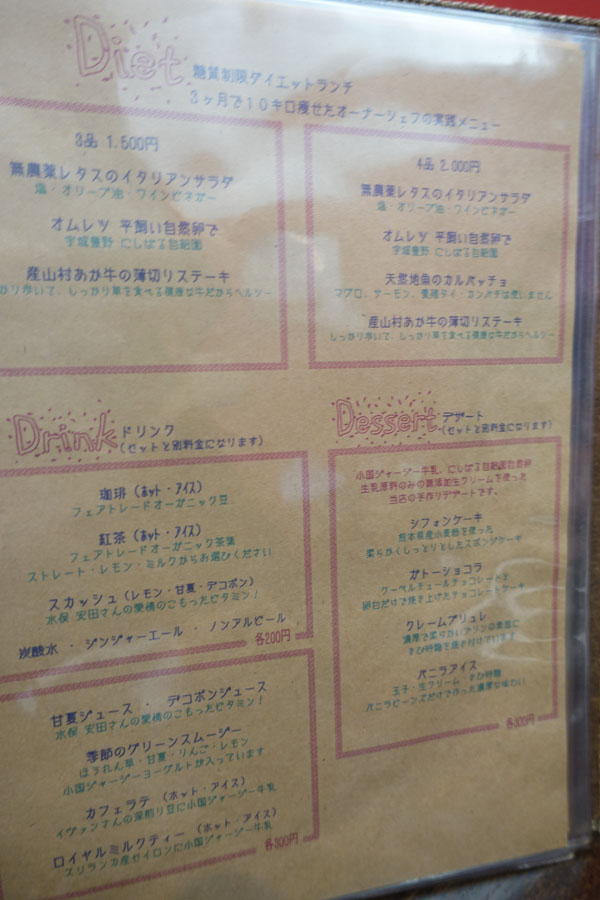 Diet 糖質制限ダイエットランチ
3ヶ月で10キロ痩せたオーナーシェフの実践メニュー
3品 1.500円
無農薬レタスのイタリアンサラダ
塩・オリーブ油・ワインビネガー
オムレツ 平飼い自然卵で
宇城豊野 にしばる自給園
産山村あか牛の薄切りステーキ
かり歩いて、しっかり草を食べる健康な牛だからヘルシー
4品 2.000円
無農薬レタスのイタリアンサラダ
塩・オリーブ油・ワインビネガー
オムレツ 平飼い自然卵で
宇城豊野 にしばる自給園
天然地魚のカルパッチョ
マグロ、サーモン、養殖タイ・カンパチは使いません
産山村あか牛の薄切りステーキ
しっかり歩いて、しっかり草を食べる健康な牛だからヘルシー
Drink ドリンク
(セットと別料金になります)
珈琲 (ホット・アイス)
フェアトレードオーガニック豆
紅茶 (ホット・アイス)
フェアトレードオーガニック茶葉
ストレート・レモン・ミルクからお選びください
スカッシュ (レモン・甘夏・デコポン)
水俣 安田さんの愛情のこもったビタミン!
炭酸水 ・ ジンジャーエール ・ ノンアルビール
各200円
甘夏ジュース ・ デコポンジュース
水俣 安田さんの愛情のこもったビタミン!
季節のグリーンスムージー
ほうれん草・甘夏・りんご・レモン
小国ジャージーヨーグルトが入っています
カフェラテ (ホット・アイス)
イヴァンさんの深煎り豆に小国ジャージー牛乳
ロイヤルミルクティー (ホット・アイス)
スリランカ産セイロンに小国ジャージー牛乳
各300円
Dessert デザート
(セットと別料金になります)
小国ジャージー牛乳、にしばる自給園自然卵
生乳原料のみの無添加生クリームを使った
当店の手作りデザートです。
シフォンケーキ
熊本県産小麦粉を使った
柔らかくしっとりとしたスポンジケーキ
ガトーショコラ
クーベルチュールチョコレートと
卵白だけで焼き上げたチョコレートケーキ
クレームブリュレ
濃厚で柔らかいプリンの表面に
きび砂糖を焼き付けています
バニラアイス
玉子・生クリーム・きび砂糖
バニラビーンズだけで作った濃厚な味わい
各300円